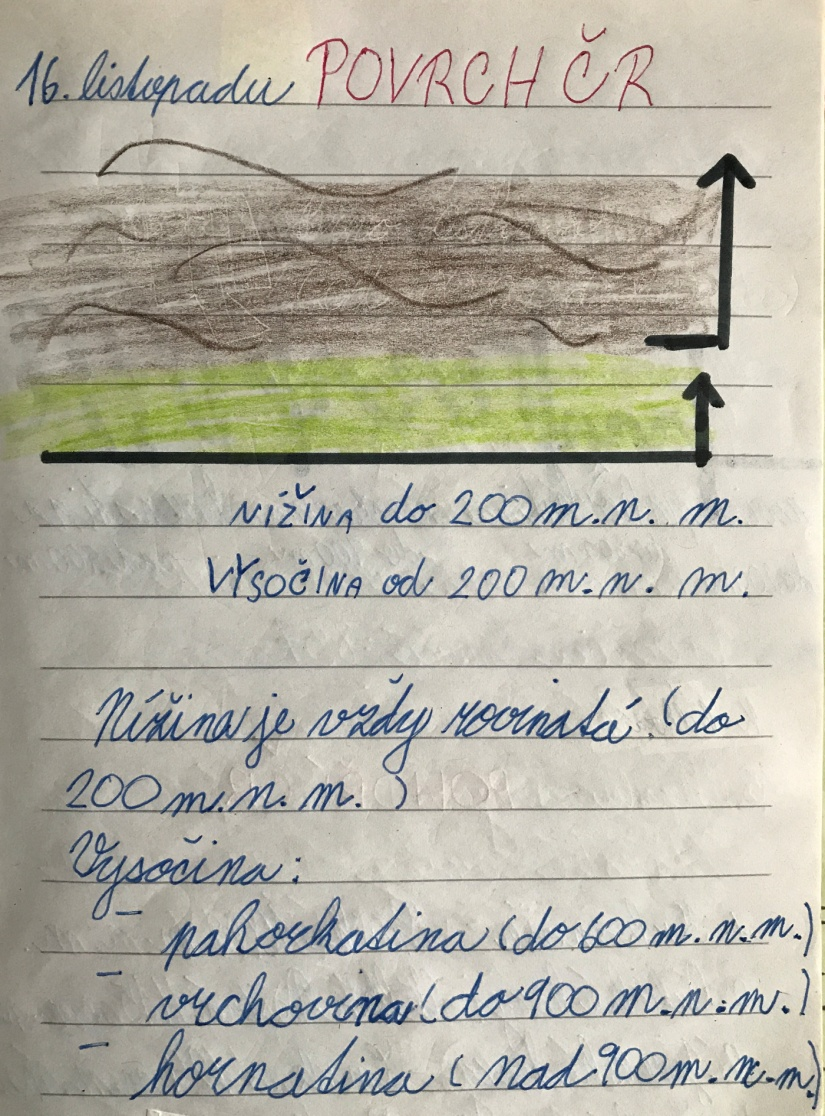 16. listopadu POVRCH ČR
NÍŽINA do 200 m.n. m.
VYSOČINA od 200 m.n. m.
Nížina je vždy rovinatá (do
200 m.n. m. )
Vysočina:
- pahorkatina (do 600 m.n.m.)
- vrchovina (do 900 m.n.m.)
- hornatina (nad 900 m.n.m)